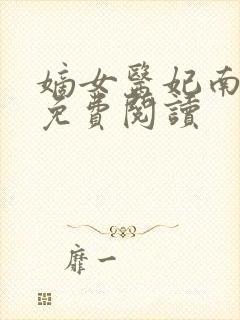 嫡女醫妃南
免費閱讀
靡一